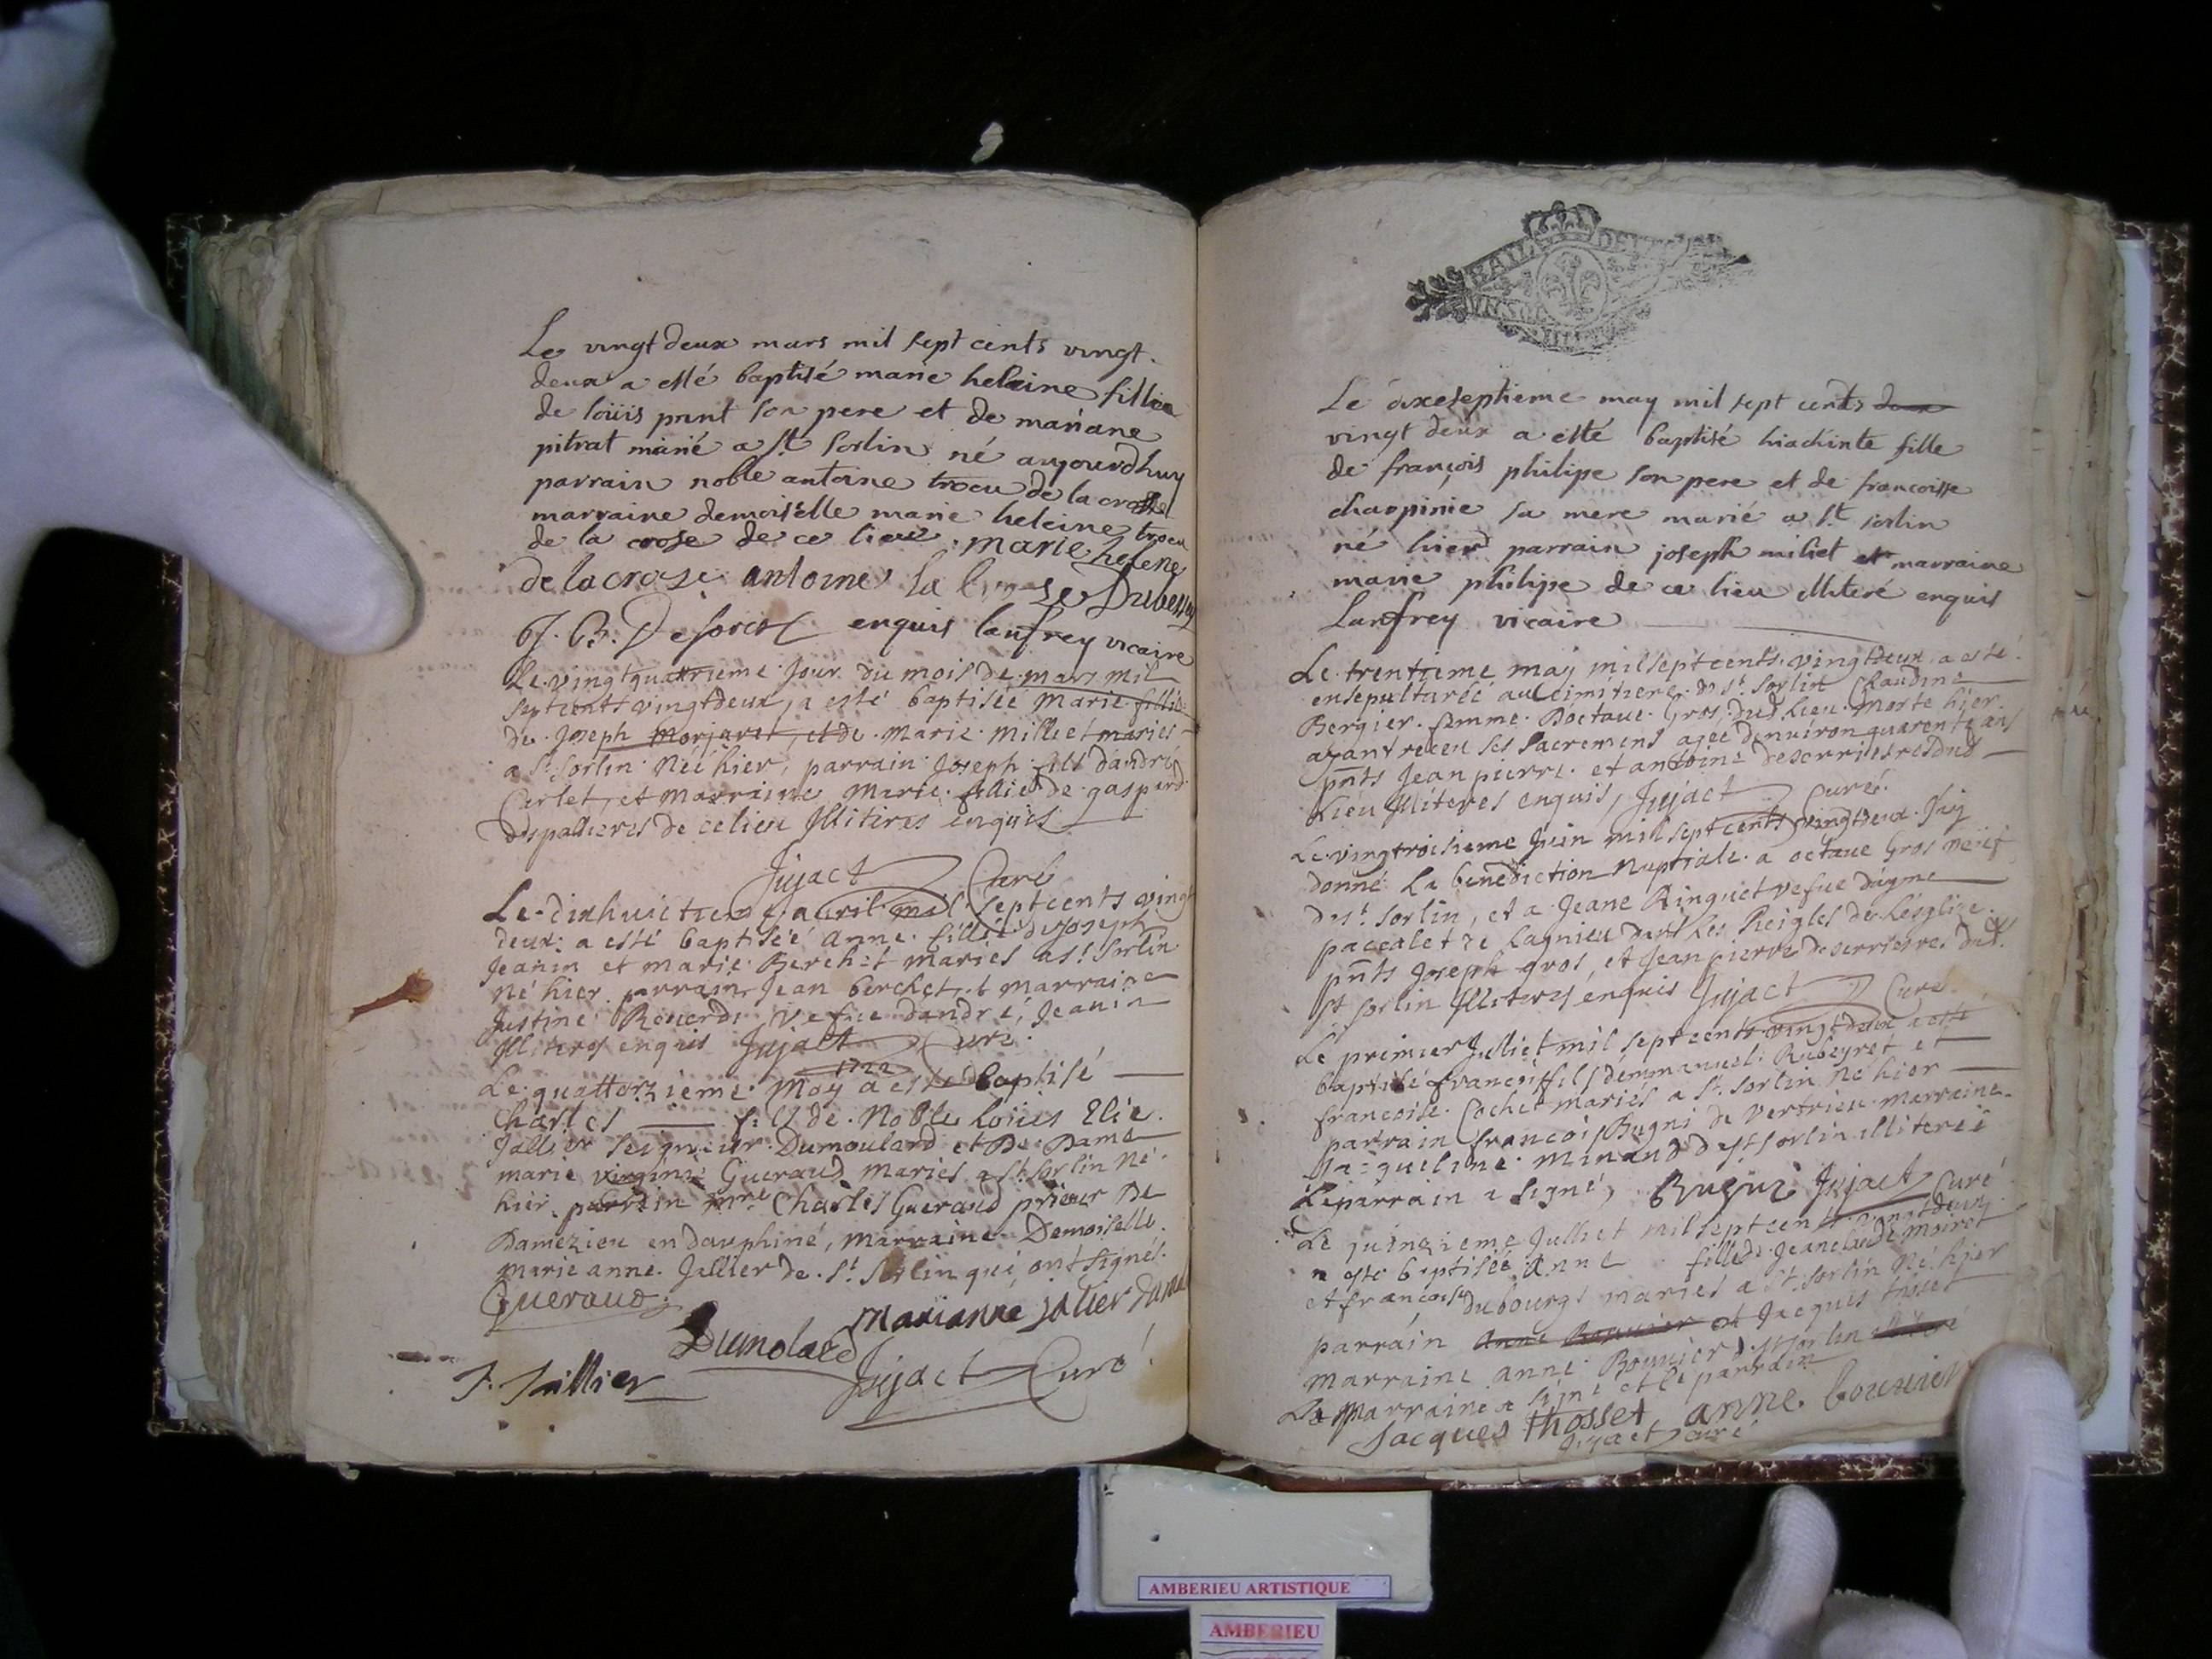 Le vingt deux mars mil sept cents vingt
deux a esté baptisé marie helaine fillie
de loüis prunt son pere et de mariane
pitrat marié a St sorlin né aujourdhuy
parrain noble antoine trocu de la crose
marraine demoiselle marie heleine trocu
de la crose de ce lieu. marie helene
de la croze antoine la
enquis lanfrey vicaire
Le vingtquatrieme jour du mois de mars mil
septcents vingtdeux a esté baptisée Marie fillie
de Joseph Morjaret, et de Marie Milliet mariés
a St Sorlin née hier, parrain Joseph fils dandré
Carlet, et Marraine Marie fillie de gaspard
despallieres de ce lieu Illiteres enquis
Jujact Curé
Le dixhuictieme auril mil septcents vingt
deux a esté baptisée Anne fillie de Joseph
Jeanin et Marie Berchet mariés a St Sorlin
Né hier parrain Jean berchet et marraine
Justine Reuerdi vefue dandré Jeanin
Illiteres enquis Jujact Curé.
1722
Le quattorzieme May a esté baptisé
Charles fils de Noble Loüies Elie
Jallier seigneur Dumoulard et De Dame
marie virginie Gueraud mariés a St Sorlin Né
hier, parrain Mre Charles Gueraud prieur De
Damezieu en dauphiné, marraine Demoiselle
marie anne Jallier de St Sorlin qui ont signés.
Gueraud
marianne jalier
Dumolard
J. Jallier Jujact Curé
BAIL DE
Le dixeseptieme may mil sept cents deux
vingt deux a esté baptisé hiachinte fille
de françois philipe son pere et de francoisse
charpinie sa mere marié a St sorlin
né hier parrain joseph miliet et marraine
marie philipe de ce lieu illiteré enquis
Lanfrey vicaire
Le trentieme may mil septcents vingtdeux a esté
ensepulturée au cimitiere de St Sorlin Claudine
Bergier femme Doctaue Gros dud Lieu Morte hier
ayant receu ses sacrements agee denuiron quarente ans
pnts Jean pierre et antoine deserrieres dud
Lieu Illiteres enquis, Jujact Curé.
Le vingtroisieme Juin mil septcents vingtdeux Jay
donné La benediction Nuptiale a octaue Gros
de St Sorlin, et a Jeane Ringuet vefue dayme
pacealet de Lagnieu dans Les Reigles de Leglize
pnts Joseph gros, et Jean pierre deserrieres dud
St Sorlin Illiteres enquis Jujact Curé
Le premier Julliet mil septcents vingtdeux a esté
baptisé francois fils demmanuel Rubeyret et
francoise Cochet mariés a St Sorlin Né hier
parrain francois Bugni de Vertrieu marraine
Jacqueline Minand de St Sorlin illiterée
Le parrain a signé, Bugni Jujact Curé
Le quinzieme Julliet mil septcents vingtdeux
a esté baptisée Anne fille de Jeanclaude Moiret
et francoise dubourg mariés a St Sorlin Né hier
parrain Anne Bouuier et Jacques thosset
marraine anne Bouuier de St Sorlin
La Marraine a signé et le parrain
Jacques thosset anne bouuier
Jujact curé
AMBERIEU ARTISTIQUE
AMBERIEU